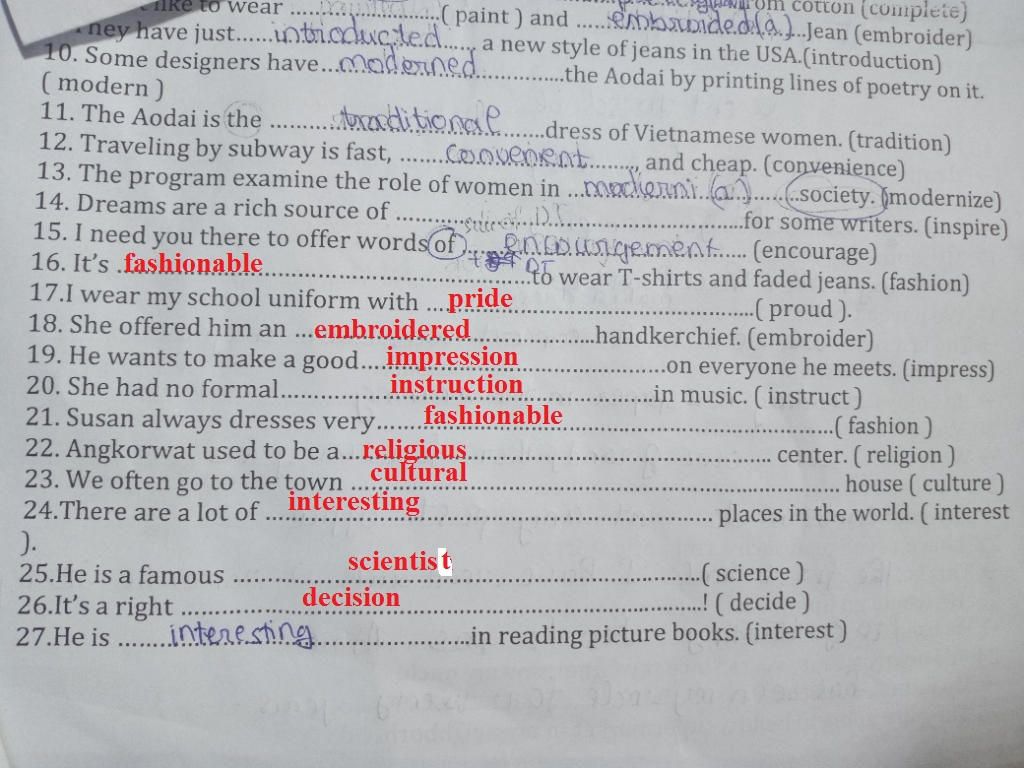 like to wear ........................( paint ) and ......embroided(a)...Jean (embroider)
from cotton (complete)
hey have just......introducted......, a new style of jeans in the USA.(introduction)
10. Some designers have...moderned..................the Aodai by printing lines of poetry on it.
( modern )
11. The Aodai is the ............traditional..........dress of Vietnamese women. (tradition)
12. Traveling by subway is fast, .......convenient........, and cheap. (convenience)
13. The program examine the role of women in ...moderni (a)........society. (modernize)
14. Dreams are a rich source of ..................................................for some writers. (inspire)
15. I need you there to offer words of .....encoungement...... (encourage)
16. It's ...fashionable............................to wear T-shirts and faded jeans. (fashion)
17.I wear my school uniform with ...pride..............................( proud ).
18. She offered him an ...embroidered..................handkerchief. (embroider)
19. He wants to make a good....impression.....................on everyone he meets. (impress)
20. She had no formal................instruction...................in music. ( instruct )
21. Susan always dresses very.......fashionable.....................................( fashion )
22. Angkorwat used to be a...religious........................................ center. ( religion )
23. We often go to the town ...cultural............................................... house ( culture )
24.There are a lot of ...interesting........................................... places in the world. ( interest
).
25.He is a famous ................scientist...................................( science )
26.It's a right ..................decision......................................! ( decide )
27.He is ........interesting......................in reading picture books. (interest )